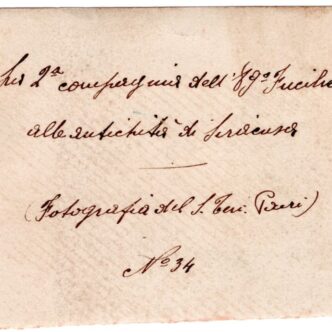 La 2ª compagnia dell'89º Fucilie
alle antichità di Siracusa
(Fotografia del S. Ten. )
Nº 34